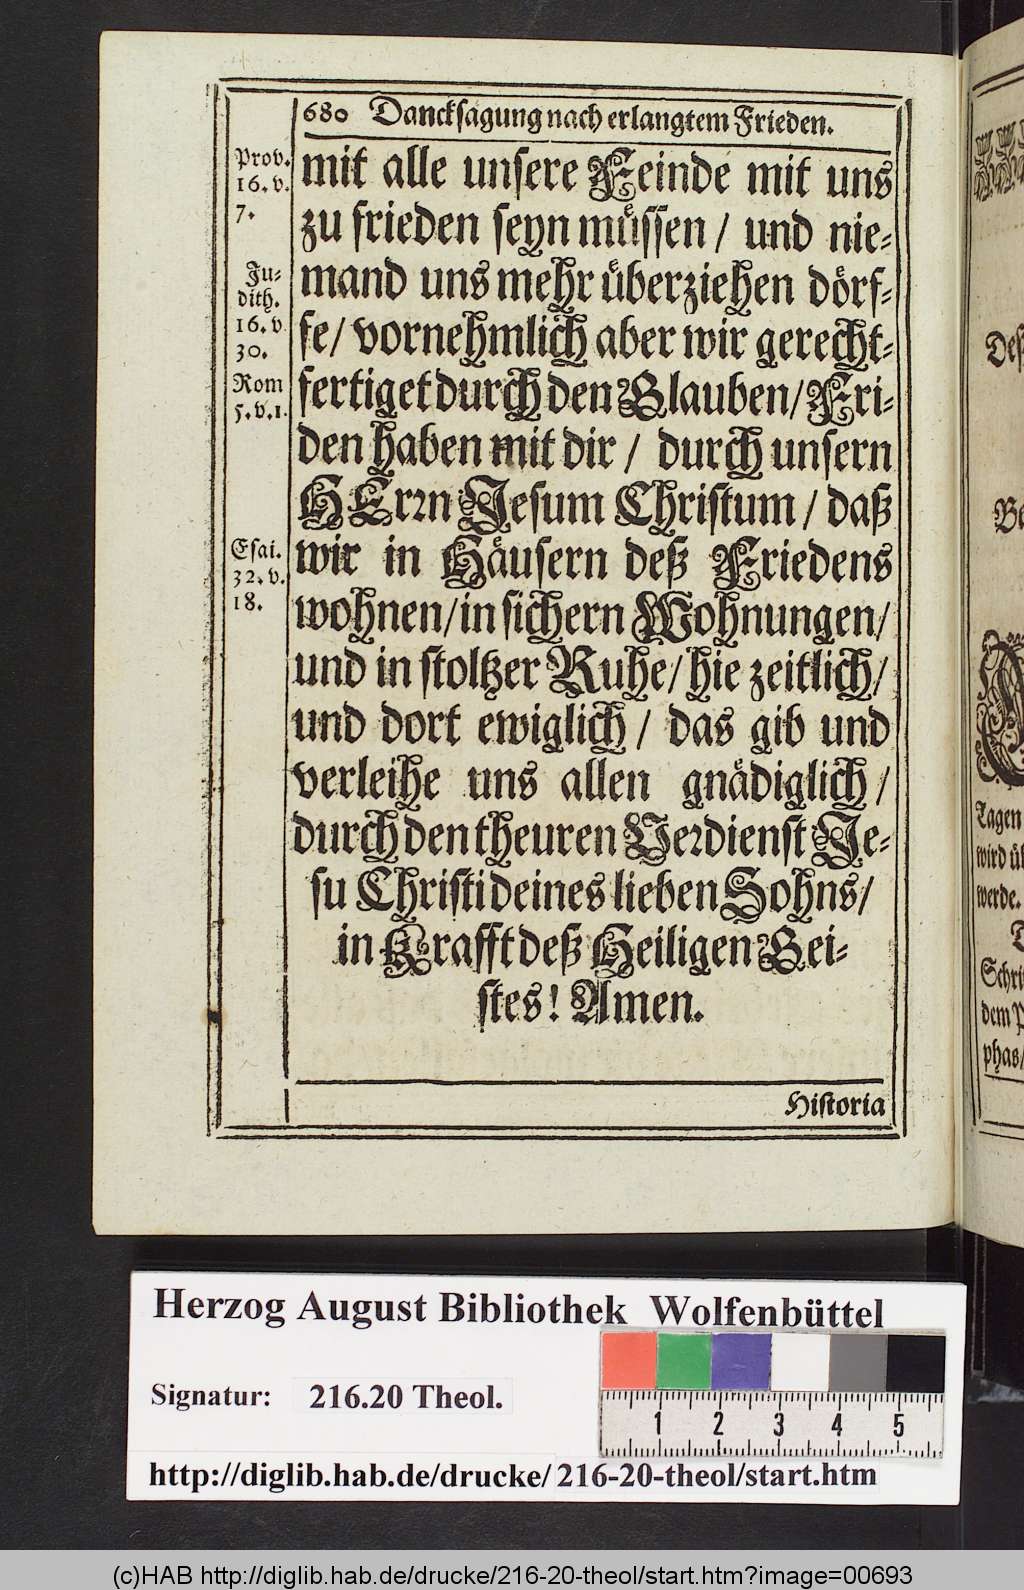 680 Dancksagung nach erlangtem Frieden.
Prov.
16. v.
7.
Ju-
dith.
16. v
30.
Rom
5. v. 1.
Esai.
32. v.
18.
mit alle unsere Feinde mit uns
zu frieden seyn müssen / und nie-
mand uns mehr überziehen dörf-
fe / vornehmlich aber wir gerecht-
fertiget durch den Glauben / Fri-
den haben mit dir / durch unsern
HErrn Jesum Christum / daß
wir in Häusern deß Friedens
wohnen / in sichern Wohnungen /
und in stoltzer Ruhe / hie zeitlich /
und dort ewiglich / das gib und
verleihe uns allen gnädiglich /
durch den theuren Verdienst Je-
su Christi deines lieben Sohns /
in Krafft deß Heiligen Gei-
stes! Amen.
Historia
Tagen
wird üb
werde.
Schri
dem P
phas/
Herzog August Bibliothek Wolfenbüttel
Signatur: 216.20 Theol.
1 2 3 4 5
http://diglib.hab.de/drucke/ 216-20-theol/start.htm
(c)HAB http://diglib.hab.de/drucke/216-20-theol/start.htm?image=00693